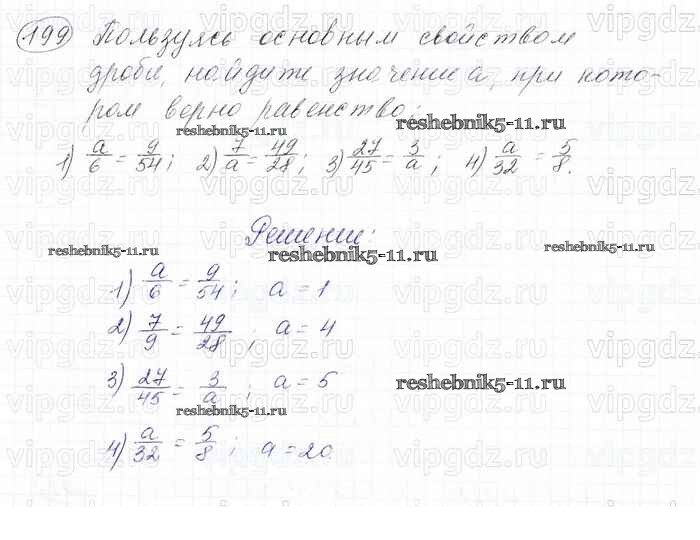 199 Пользуясь основным свойством
дроби, найдите значение a, при кото-
ром верно равенство:
reshebnik5-11.ru reshebnik5-11.ru
1) a/6 = 9/54; 2) 7/a = 49/28; 3) 27/45 = 3/a; 4) a/32 = 5/8.
Решение:
reshebnik5-11.ru reshebnik5-11.ru reshebnik5-11.ru
1) a/6 = 9/54; a = 1
2) 7/9 = 49/28; a = 4
3) 27/45 = 3/a; a = 5
reshebnik5-11.ru
reshebnik5-11.ru
4) a/32 = 5/8; a = 20
vipgdz.ru